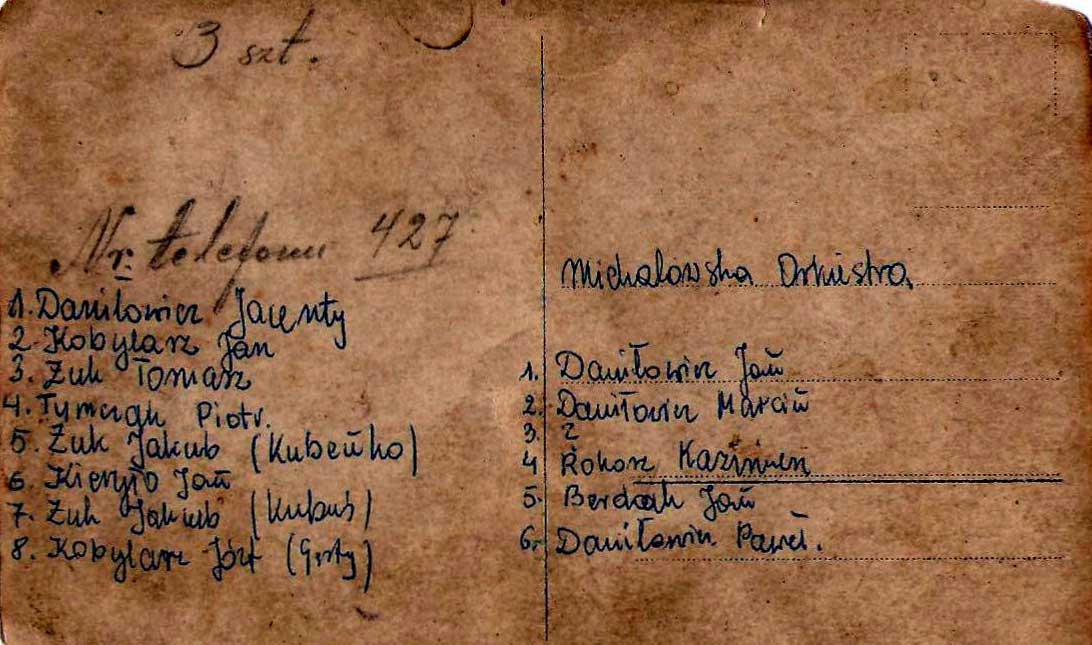 3 szt.
Nr. telefonu 427
1. Daniłowicz Jacenty
2. Kobylarz Jan
3. Żuk Tomasz
4. Tymczak Piotr.
5. Żuk Jakub (Kubeńko)
6. Kierzło Jań
7. Żuk Jakub (Kubuś)
8. Kobylarz Józf (Gęsty)
Michałowska Orkiestra
1. Daniłowicz Jań
2. Daniłowicz Marciń
3. ?
4 Rokosz Kazimierz
5. Berdzak Jań
6. Daniłowicz Paweł.